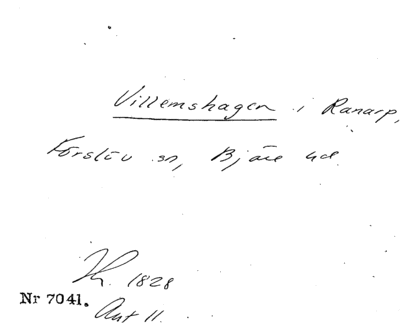 Villemshagen i Ranarp,
Förslöv sn, Bjäre hd
1828
Nr 7041.
Ant 11.